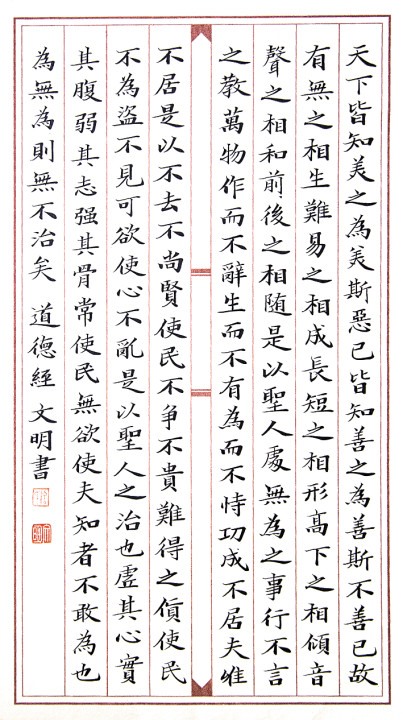 天下皆知美之為美斯惡已皆知善之為善斯不善已故
有無之相生難易之相成長短之相形高下之相傾音
聲之相和前後之相随是以聖人處無為之事行不言
之教萬物作而不辭生而不有為而不恃功成不居夫惟
不居是以不去不尚賢使民不争不貴難得之貨使民
不為盜不見可欲使心不亂是以聖人之治也虛其心實
其腹弱其志强其骨常使民無欲使夫知者不敢為也
為無為則無不治矣 道德經 文明書